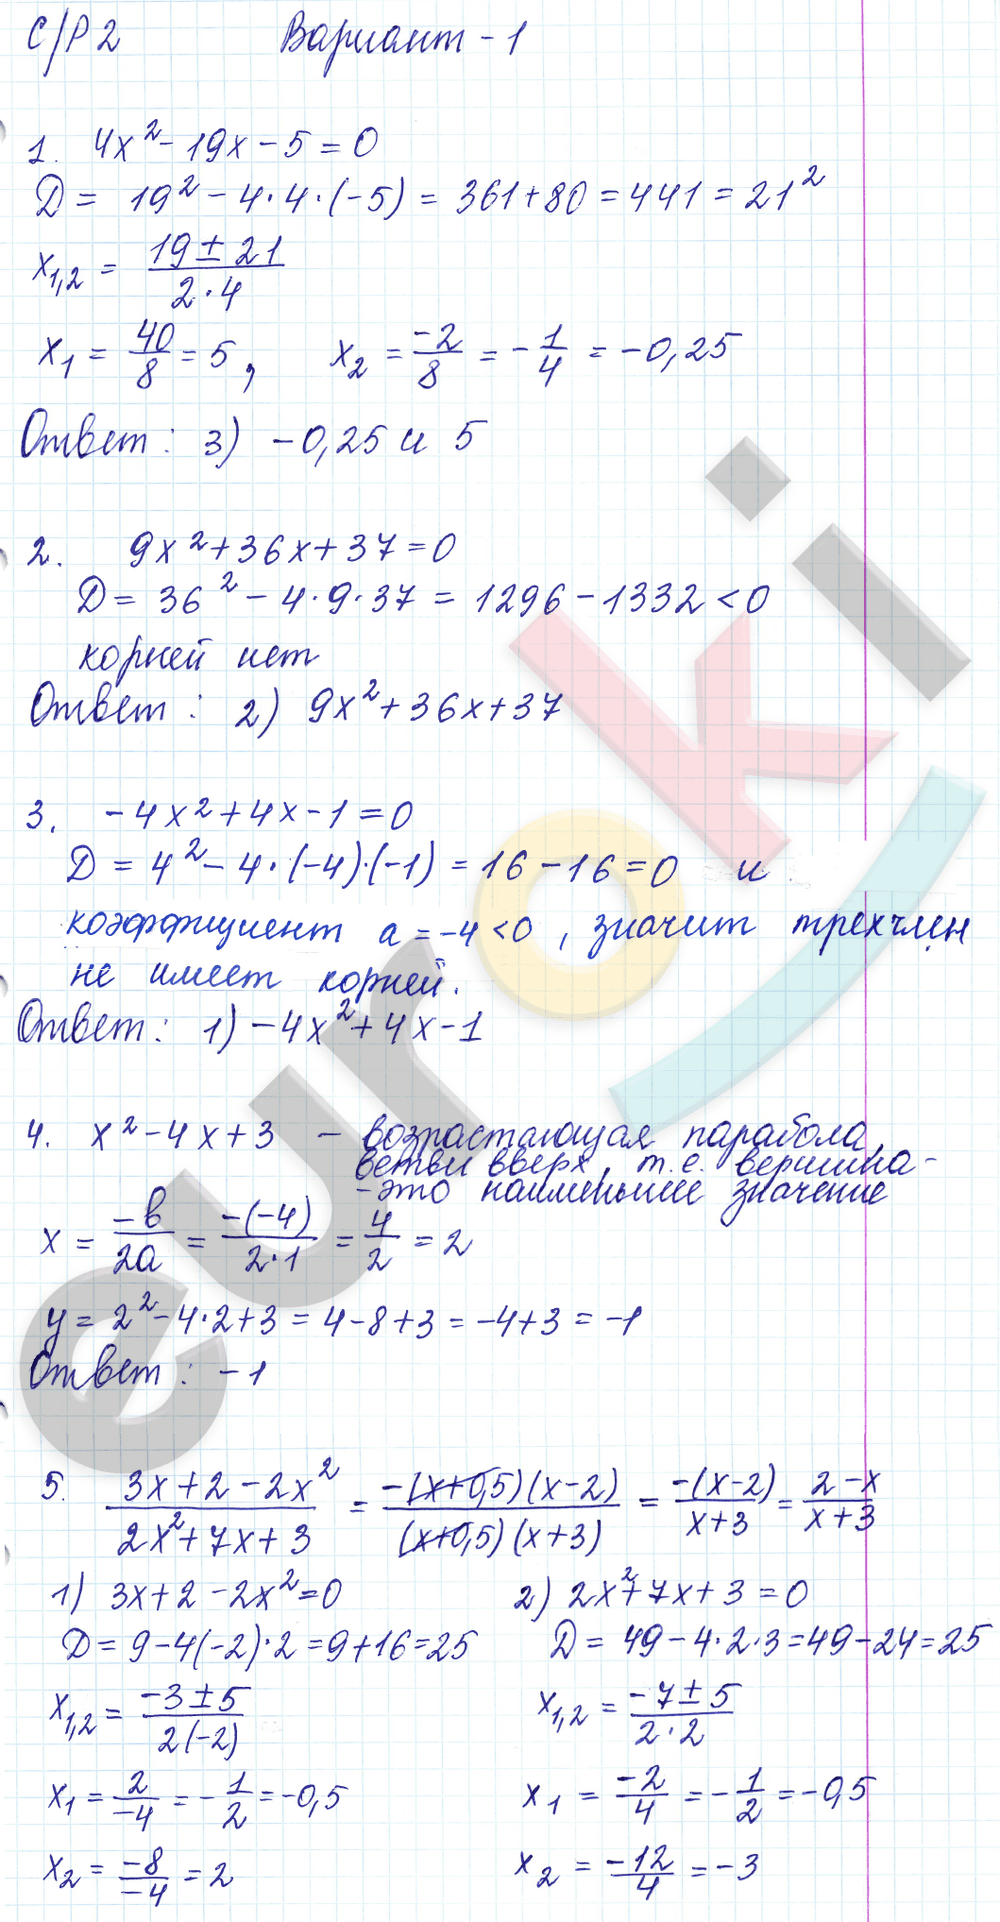 С/Р 2 Вариант - 1
1. 4x² - 19x - 5 = 0
D = 19² - 4·4·(-5) = 361 + 80 = 441 = 21²
x₁,₂ = (19 ± 21)/(2·4)
x₁ = 40/8 = 5, x₂ = -2/8 = -1/4 = -0,25
Ответ: 3) -0,25 и 5
2. 9x² + 36x + 37 = 0
D = 36² - 4·9·37 = 1296 - 1332 < 0
корней нет
Ответ: 2) 9x² + 36x + 37
3. -4x² + 4x - 1 = 0
D = 4² - 4·(-4)·(-1) = 16 - 16 = 0 и
коэффициент a = -4 < 0, значит трехчлен
не имеет корней.
Ответ: 1) -4x² + 4x - 1
4. x² - 4x + 3 - возрастающая парабола,
ветви вверх, т.е. вершина -
- это наименьшее значение
x = -b/2a = -(-4)/(2·1) = 4/2 = 2
y = 2² - 4·2 + 3 = 4 - 8 + 3 = -4 + 3 = -1
Ответ: -1
5. (3x + 2 - 2x²)/(2x² + 7x + 3) = -(x+0,5)(x-2)/(x+0,5)(x+3) = -(x-2)/(x+3) = (2-x)/(x+3)
1) 3x + 2 - 2x² = 0 2) 2x² + 7x + 3 = 0
D = 9 - 4(-2)·2 = 9 + 16 = 25 D = 49 - 4·2·3 = 49 - 24 = 25
x₁,₂ = (-3 ± 5)/2(-2) x₁,₂ = (-7 ± 5)/(2·2)
x₁ = 2/-4 = -1/2 = -0,5 x₁ = -2/4 = -1/2 = -0,5
x₂ = -8/-4 = 2 x₂ = -12/4 = -3
euroki